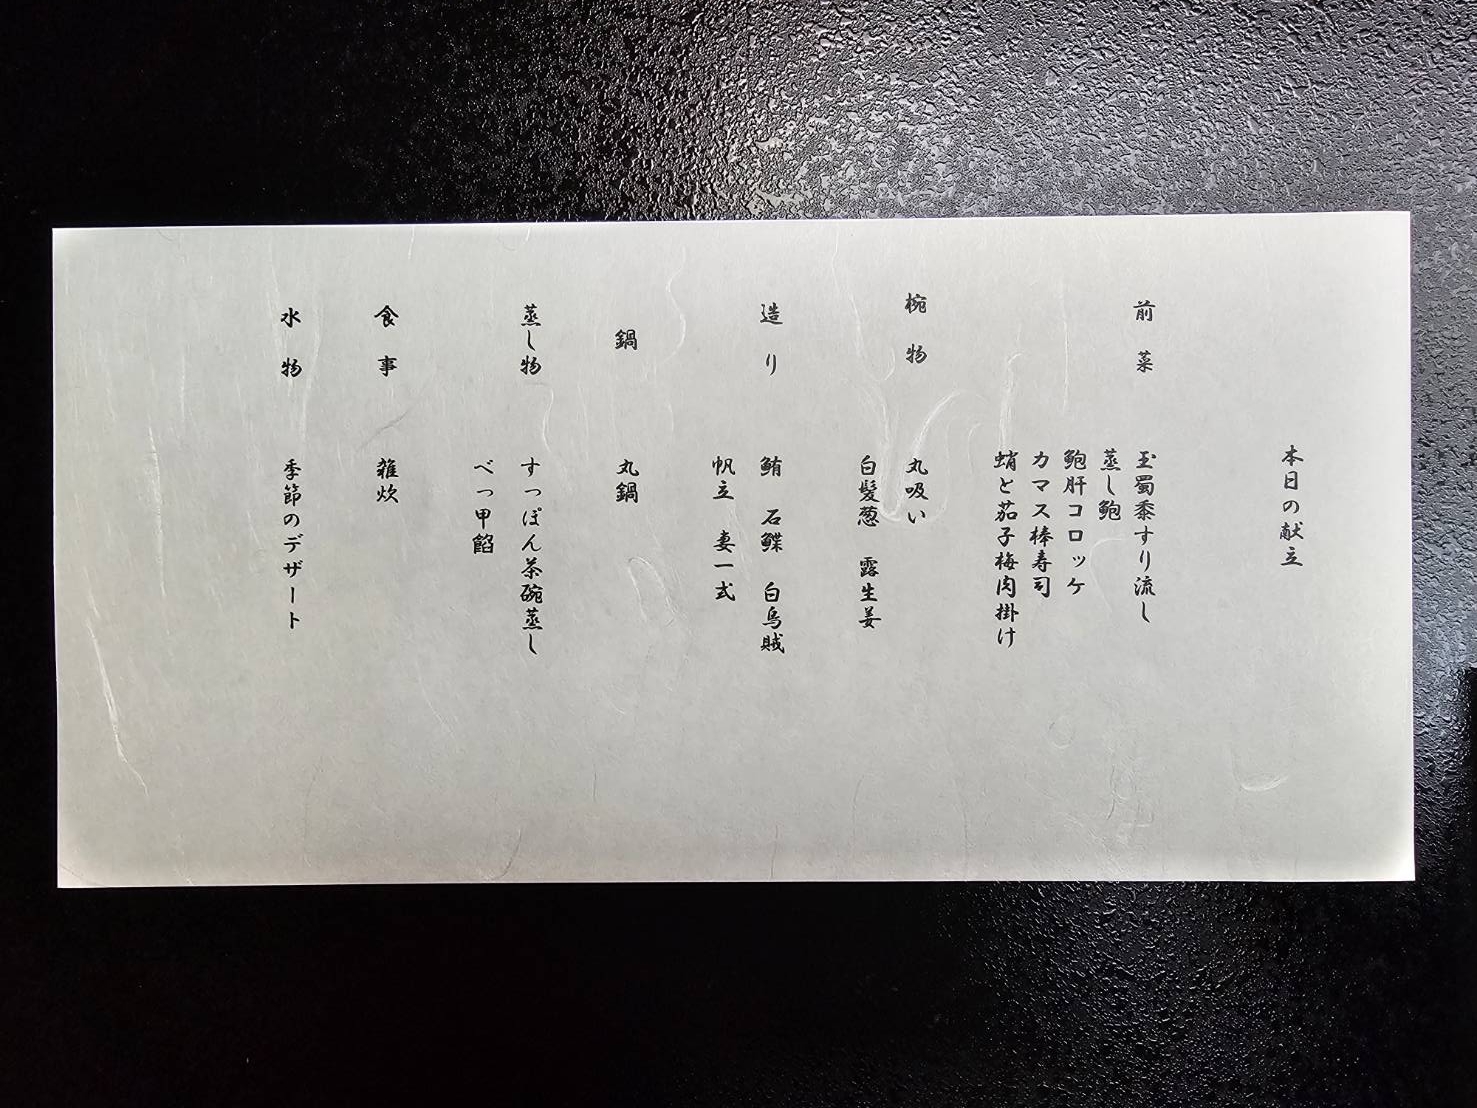 本日の献立
前菜 玉蜀黍すり流し
蒸し鮑
鮑肝コロッケ
カマス棒寿司
蛸と茄子梅肉掛け
椀物 丸吸い
白髪葱 露生姜
造り 鮪 石鰈 白烏賊
帆立 妻一式
鍋 丸鍋
蒸し物 すっぽん茶碗蒸し
べっ甲餡
食事 雑炊
水物 季節のデザート